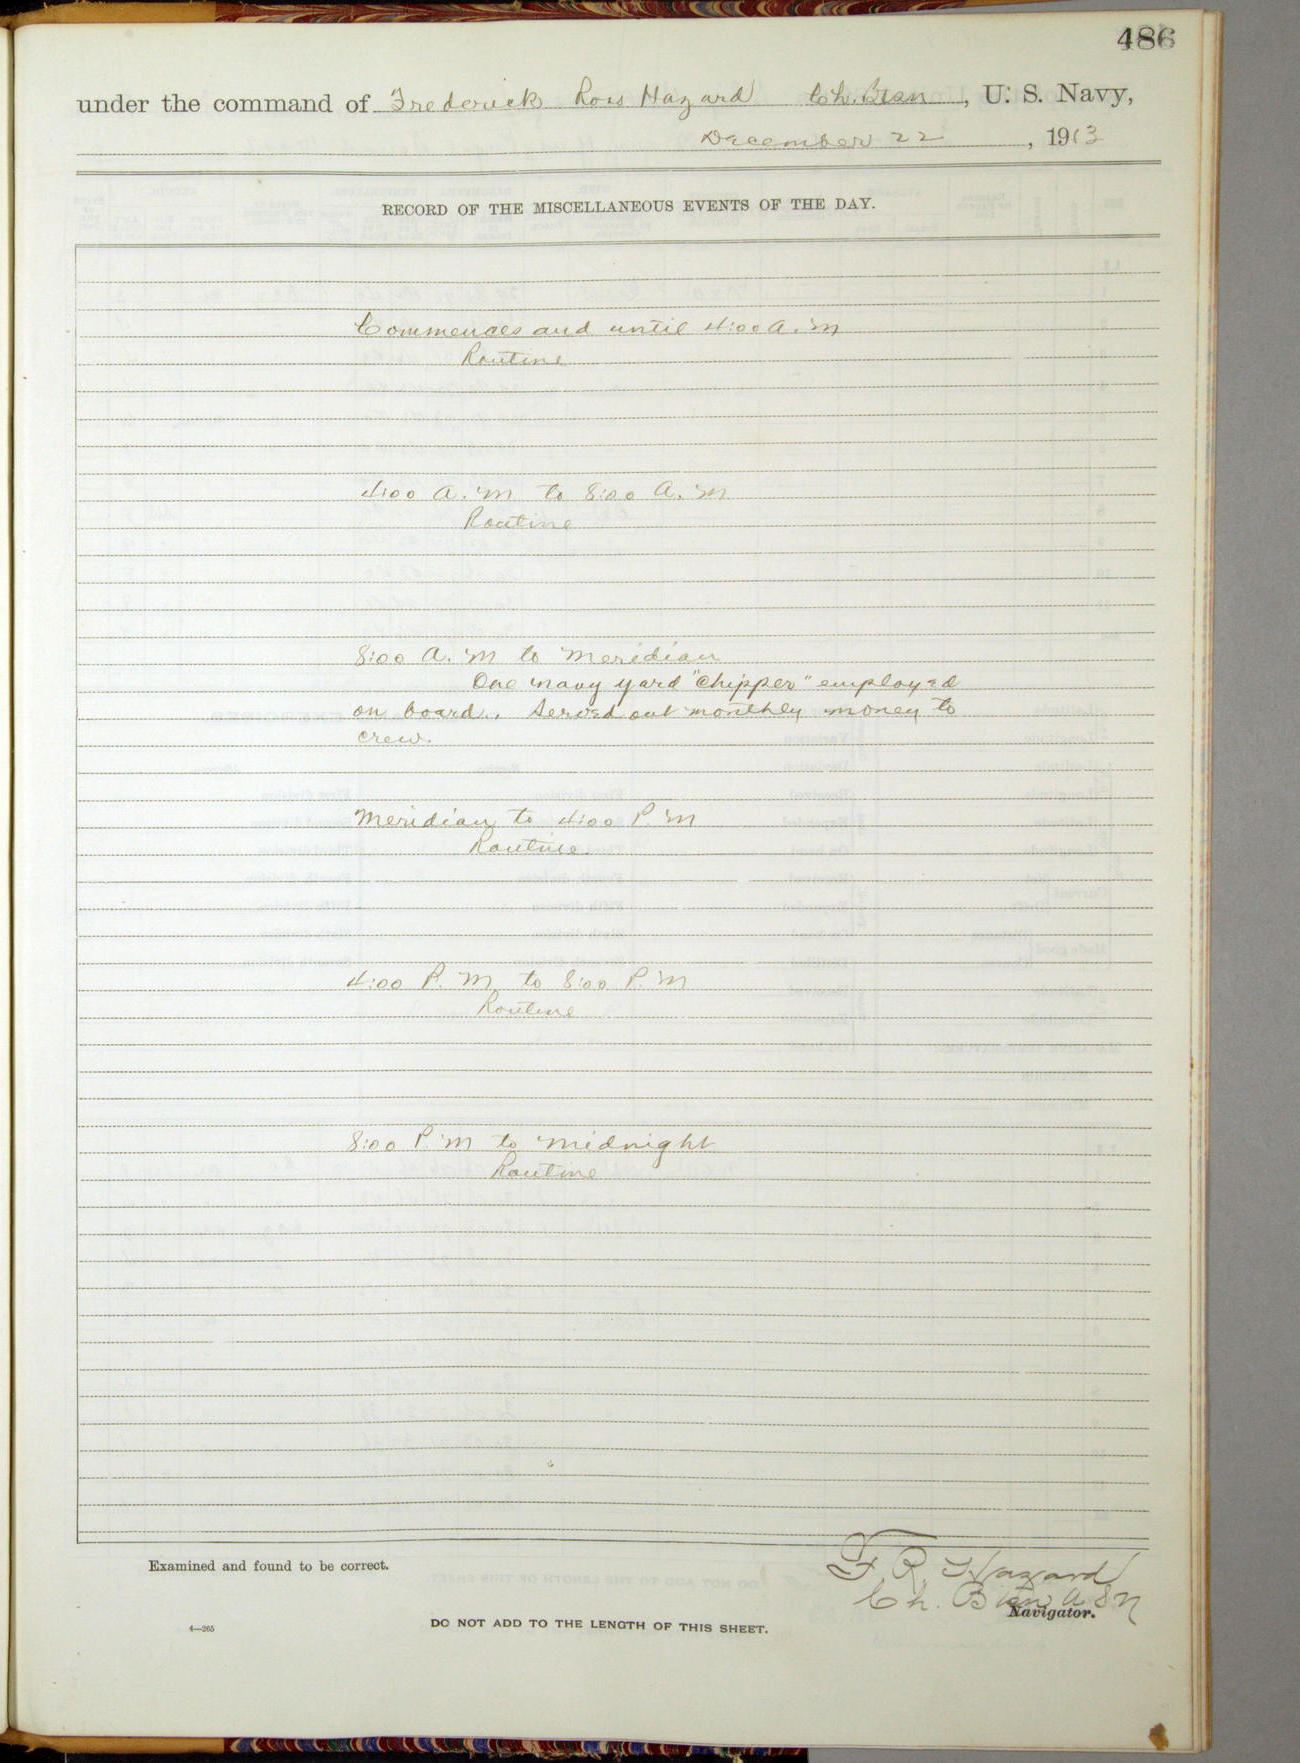 486
under the command of Frederick Ross Hazard Ch. Btsn, U. S. Navy,
December 22, 1913
RECORD OF THE MISCELLANEOUS EVENTS OF THE DAY.
Commences and until 4:00 A. M
Routine
4:00 A. M to 8:00 A. M
Routine
8:00 A. M to Meridian
One navy yard "chipper" employed
on board. Served out monthly money to
crew.
Meridian to 4:00 P. M
Routine
4:00 P. M to 8:00 P. M
Routine
8:00 P. M to Midnight
Routine
Examined and found to be correct.
F. R. Hazard
Ch. Btsn U S N
Navigator.
4—265
DO NOT ADD TO THE LENGTH OF THIS SHEET.